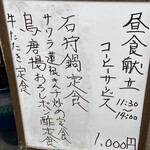 昼食献立
コーヒーサービス
11:30
~14:00
1,000円
石狩鍋定食
サクラ蓮根天ぷら炒め定食
鳥唐揚おろしポン酢定食
牛たたき定食